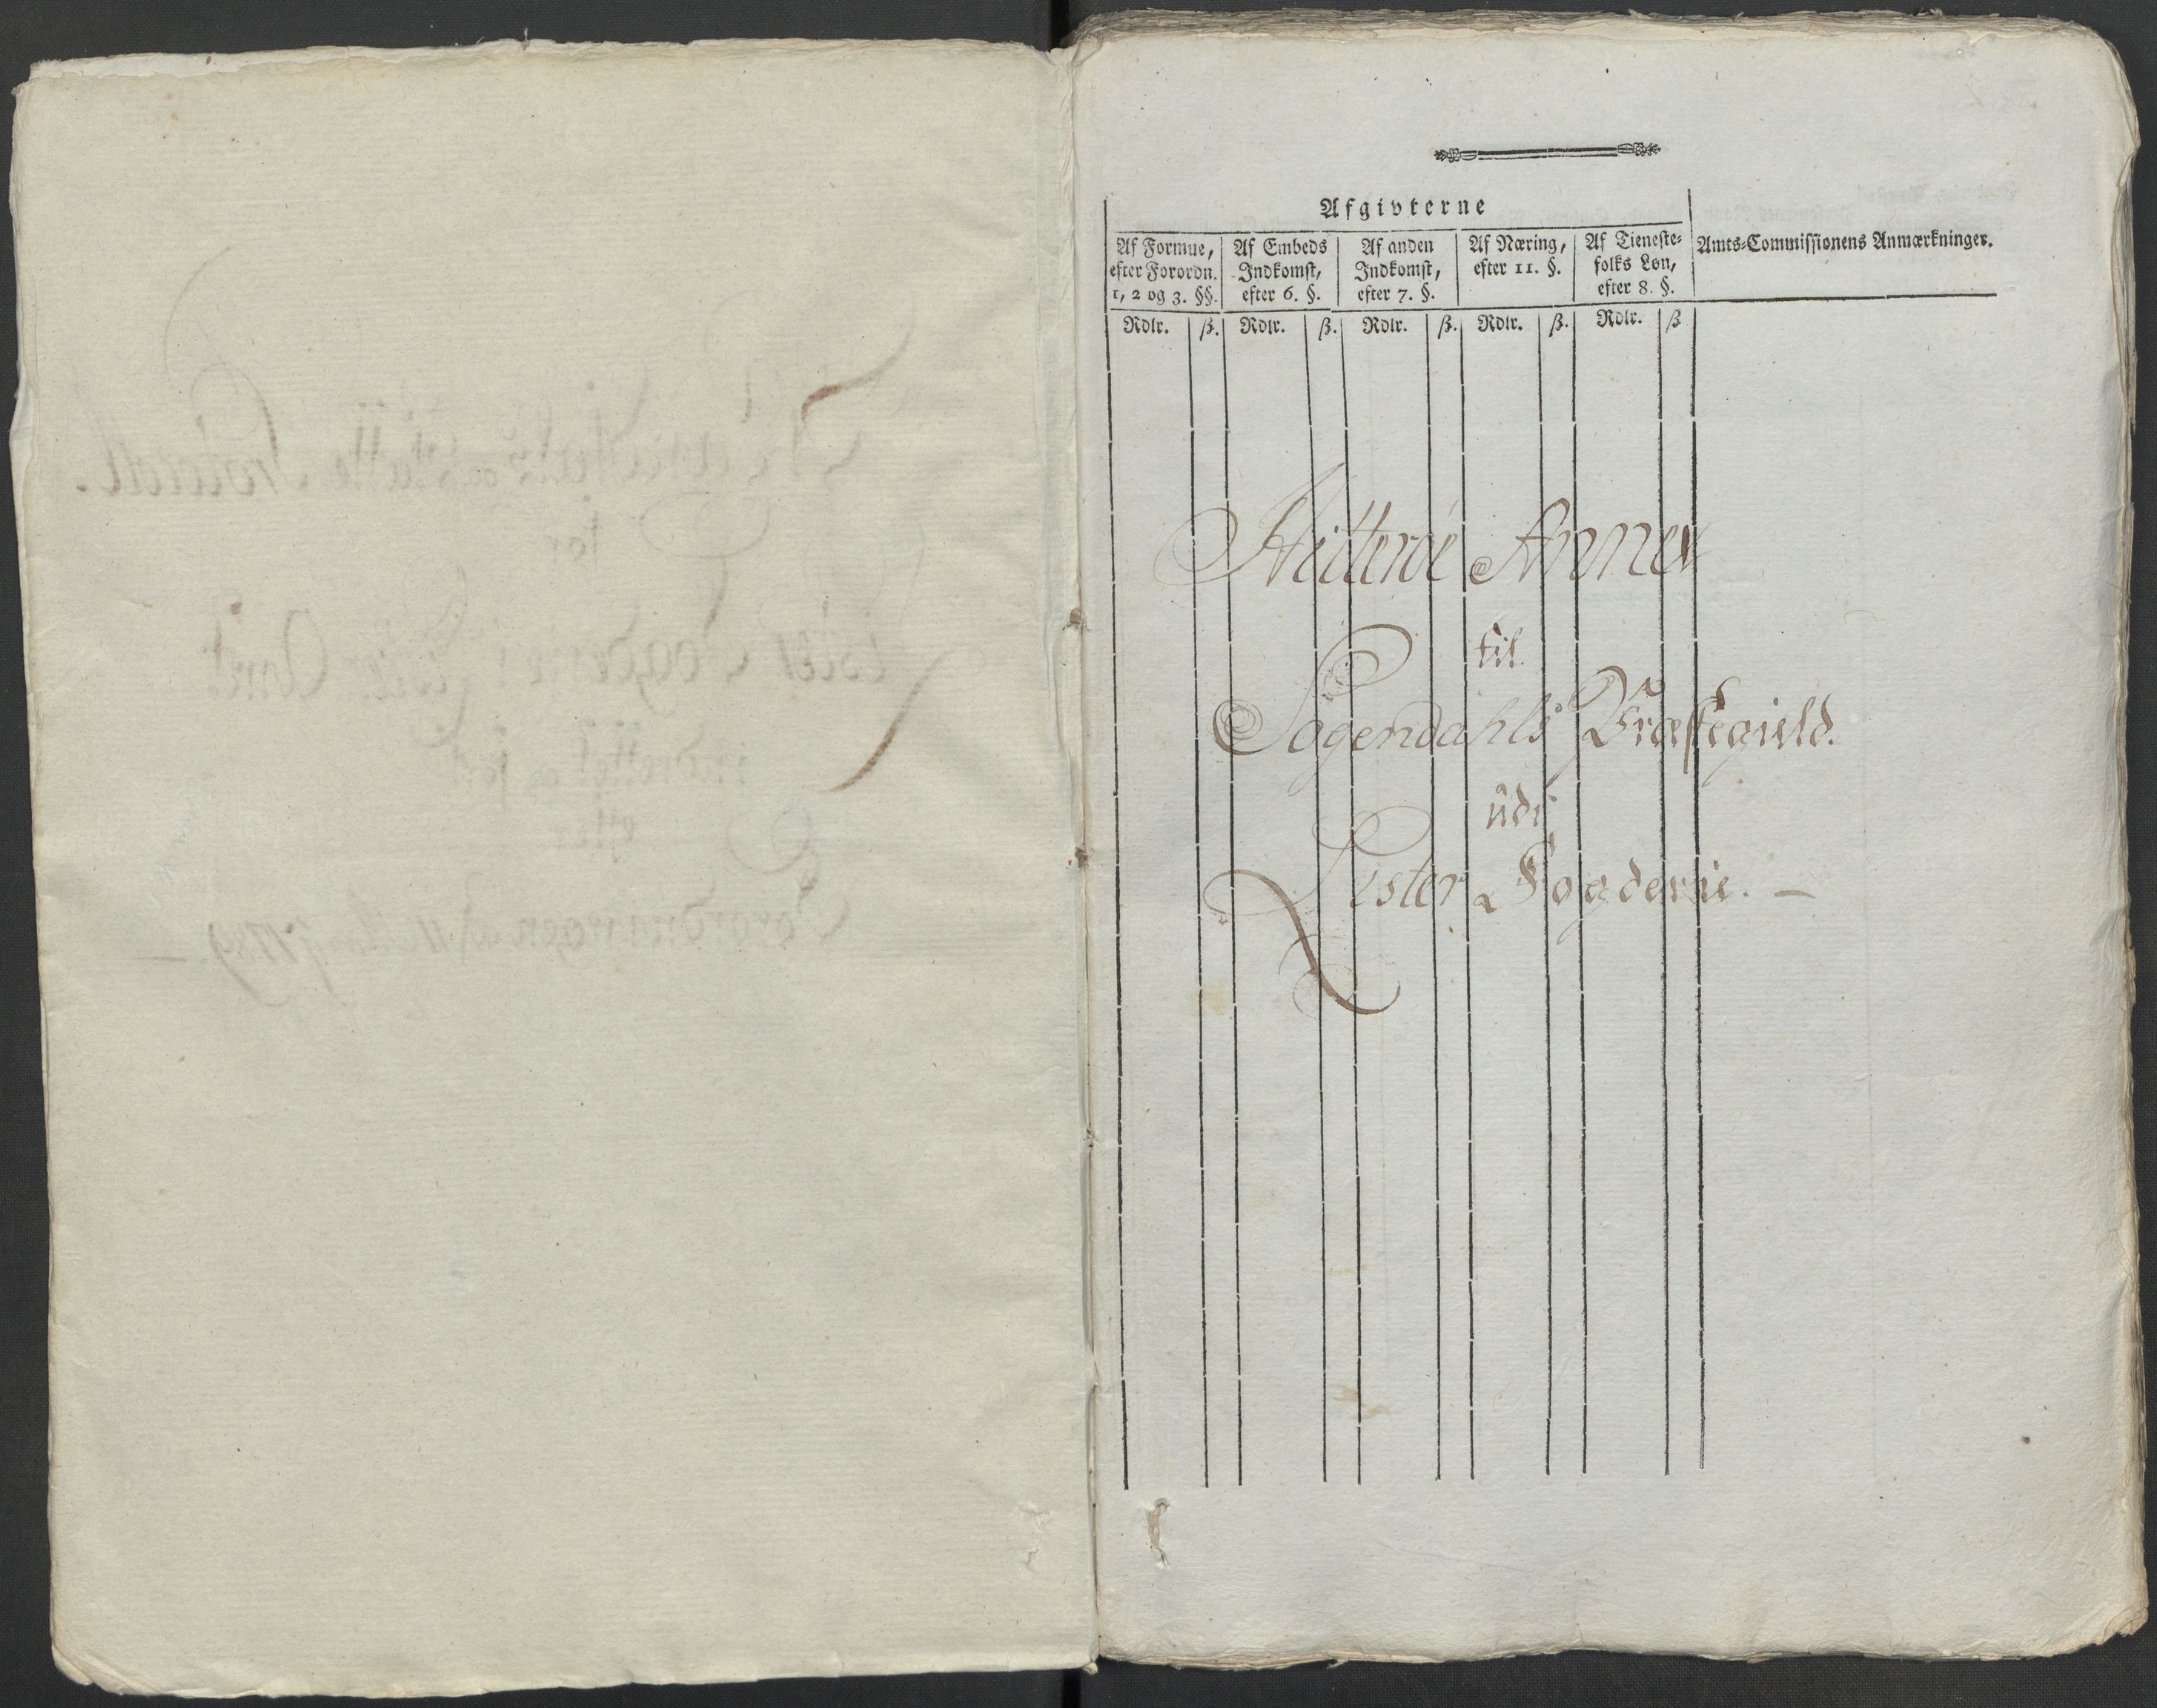 Afgivterne
Af Formue, efter Forordn. 1, 2 og 3. §§.
Af Embeds Indkomst, efter 6. §.
Af anden Indkomst, efter 7. §.
Af Næring, efter 11. §.
Af Tieneste-folks Løn, efter 8. §.
Amts-Commissionens Anmærkninger.
Rdlr. ß. Rdlr. ß. Rdlr. ß. Rdlr. ß. Rdlr. ß
Hitteröe Annex
til
Sogendahls Præstegield.
udi
Lister Fogderie. —